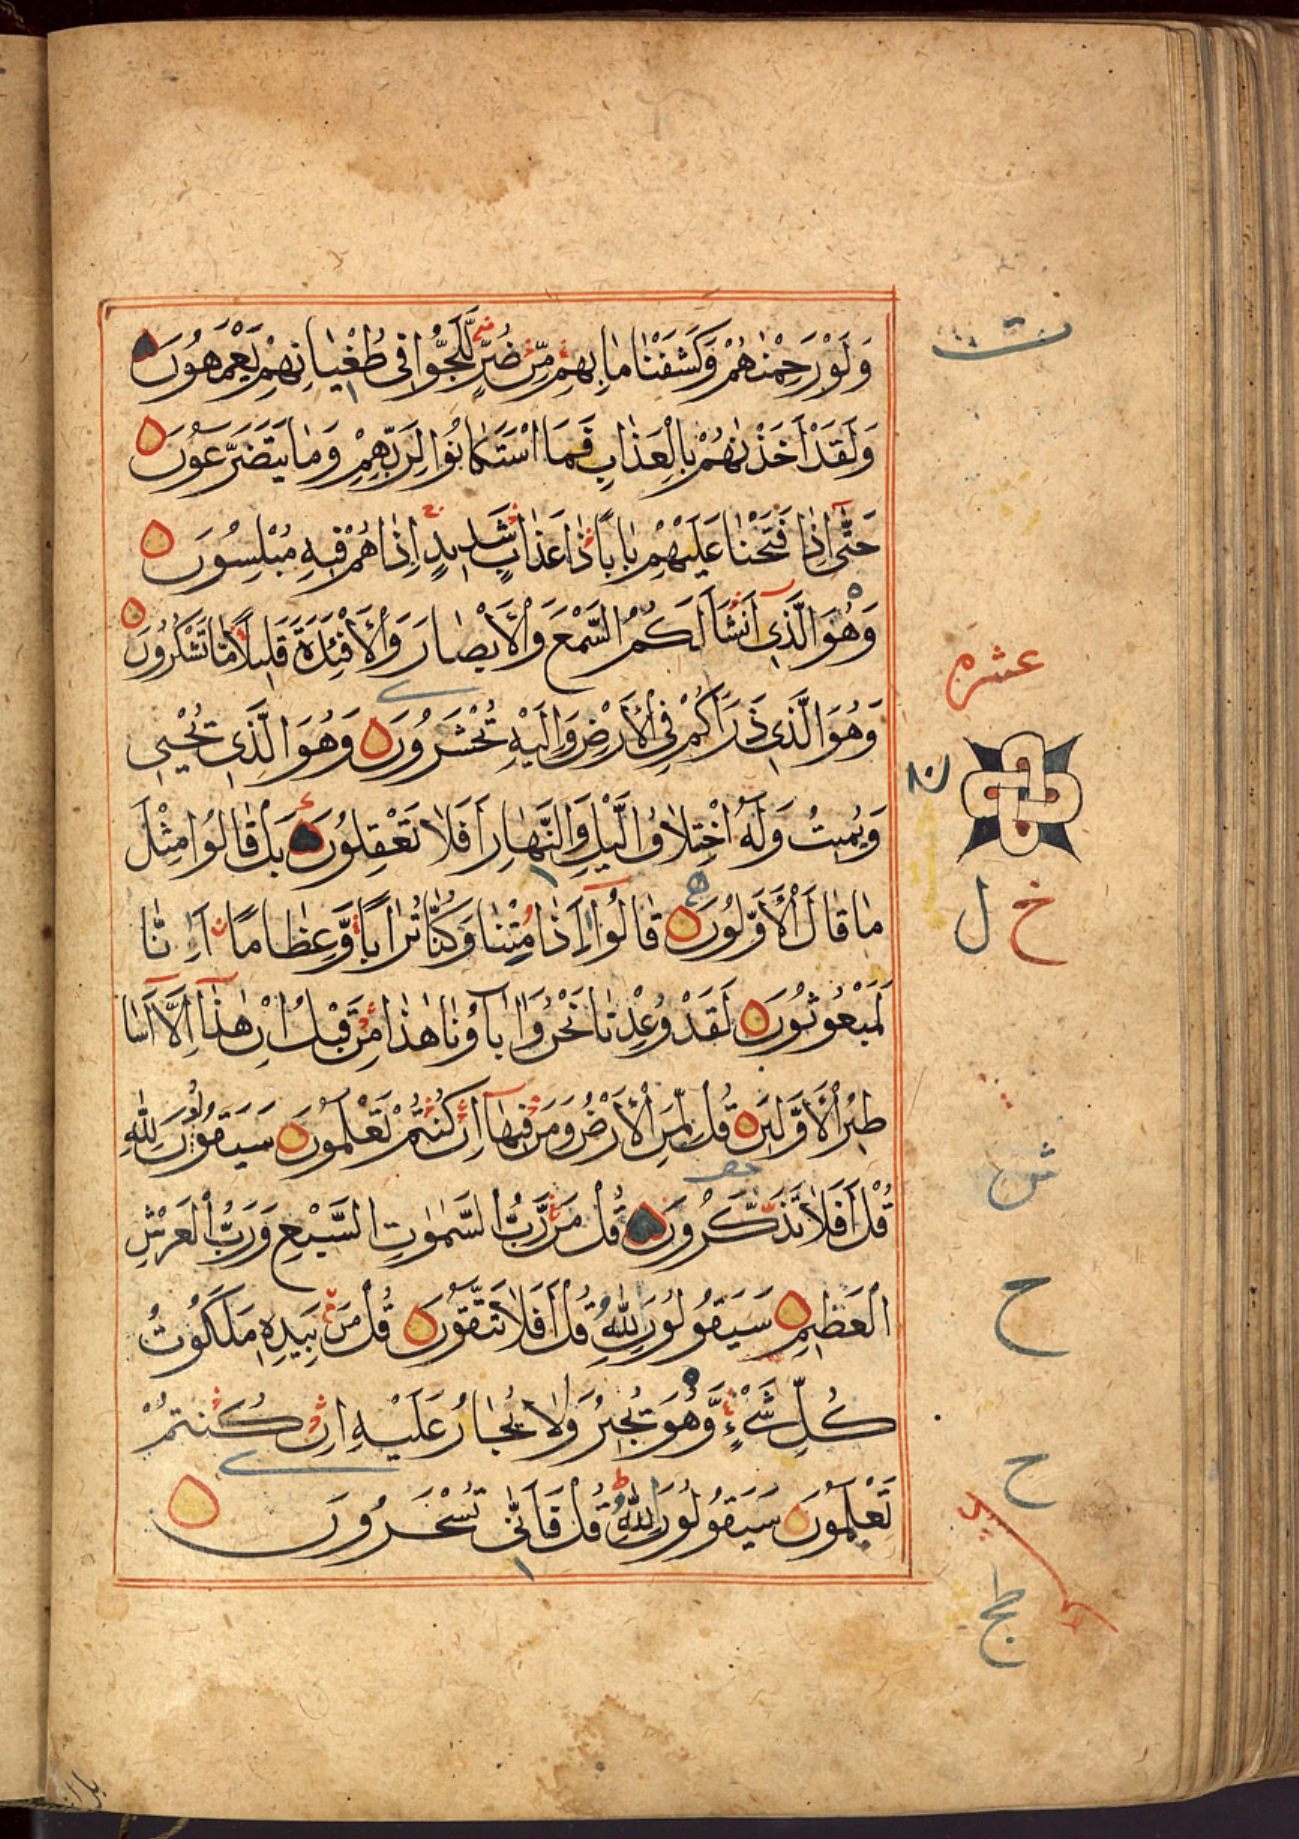 وَلَوْ رَحِمْنٰهُمْ وَكَشَفْنَا مَا بِهِمْ مِّنْ ضُرٍّ لَّلَجُّوْا فِى طُغْيَانِهِمْ يَعْمَهُوْنَ
وَلَقَدْ اَخَذْنٰهُمْ بِالْعَذَابِ فَمَا اسْتَكَانُوْا لِرَبِّهِمْ وَمَا يَتَضَرَّعُوْنَ
حَتّٰى اِذَا فَتَحْنَا عَلَيْهِمْ بَابًا ذَا عَذَابٍ شَدِيْدٍ اِذَا هُمْ فِيْهِ مُبْلِسُوْنَ
وَهُوَ الَّذِى اَنْشَاَ لَكُمُ السَّمْعَ وَالْاَبْصَارَ وَالْاَفْئِدَةَ قَلِيْلًا مَّا تَشْكُرُوْنَ
وَهُوَ الَّذِى ذَرَاَكُمْ فِى الْاَرْضِ وَاِلَيْهِ تُحْشَرُوْنَ وَهُوَ الَّذِى يُحْيِى
عشره
وَيُمِيْتُ وَلَهُ اخْتِلَافُ الَّيْلِ وَالنَّهَارِ اَفَلَا تَعْقِلُوْنَ بَلْ قَالُوْا مِثْلَ
مَا قَالَ الْاَوَّلُوْنَ قَالُوْا ءَاِذَا مِتْنَا وَكُنَّا تُرَابًا وَّعِظَامًا ءَاِنَّا
خ ل
لَمَبْعُوْثُوْنَ لَقَدْ وُعِدْنَا نَحْنُ وَاٰبَاؤُنَا هٰذَا مِنْ قَبْلُ اِنْ هٰذَا اِلَّا اَسَا
طِيْرُ الْاَوَّلِيْنَ قُلْ لِّمَنِ الْاَرْضُ وَمَنْ فِيْهَا اِنْ كُنْتُمْ تَعْلَمُوْنَ سَيَقُوْلُوْنَ لِلّٰهِ
قُلْ اَفَلَا تَذَكَّرُوْنَ قُلْ مَنْ رَّبُّ السَّمٰوٰتِ السَّبْعِ وَرَبُّ الْعَرْشِ
الْعَظِيْمِ سَيَقُوْلُوْنَ لِلّٰهِ قُلْ اَفَلَا تَتَّقُوْنَ قُلْ مَنْ بِيَدِهٖ مَلَكُوْتُ
ح
كُلِّ شَىْءٍ وَّهُوَ يُجِيْرُ وَلَا يُجَارُ عَلَيْهِ اِنْ كُنْتُمْ
تَعْلَمُوْنَ سَيَقُوْلُوْنَ لِلّٰهِ قُلْ فَاَنّٰى تُسْحَرُوْنَ
ح